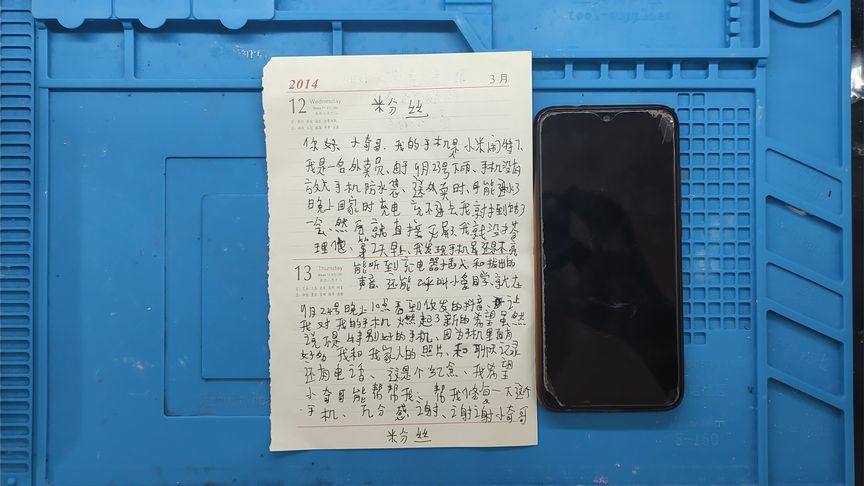 2014 3月
12 Wednesday
粉丝
你好、小奇哥、我的手机是小米闹特7、
我是一名外卖员、由于9月23号下雨、手机没有
放手机防水袋、送外卖时、可能进水了
晚上回家时充电 充不进去我就捂到
一会、然后就直接死屏了、我就没搭
理他、第2天早上、我发现手机屏还是不亮
13 Thursday
能听到充电器插入和拔出的
声音、还能呼叫小爱同学、就在
9月24号晚上10点看到你发的抖音、让
我对我的手机 燃起了新的希望虽然
说不是特别好的手机、因为手机里面有
好多 我和我家人的照片、和聊天记录
还有电话、这是个纪念、我希望
小奇哥能帮帮我、帮我修复一下这个
手机、万分感谢、谢谢小奇哥
粉丝
S-160